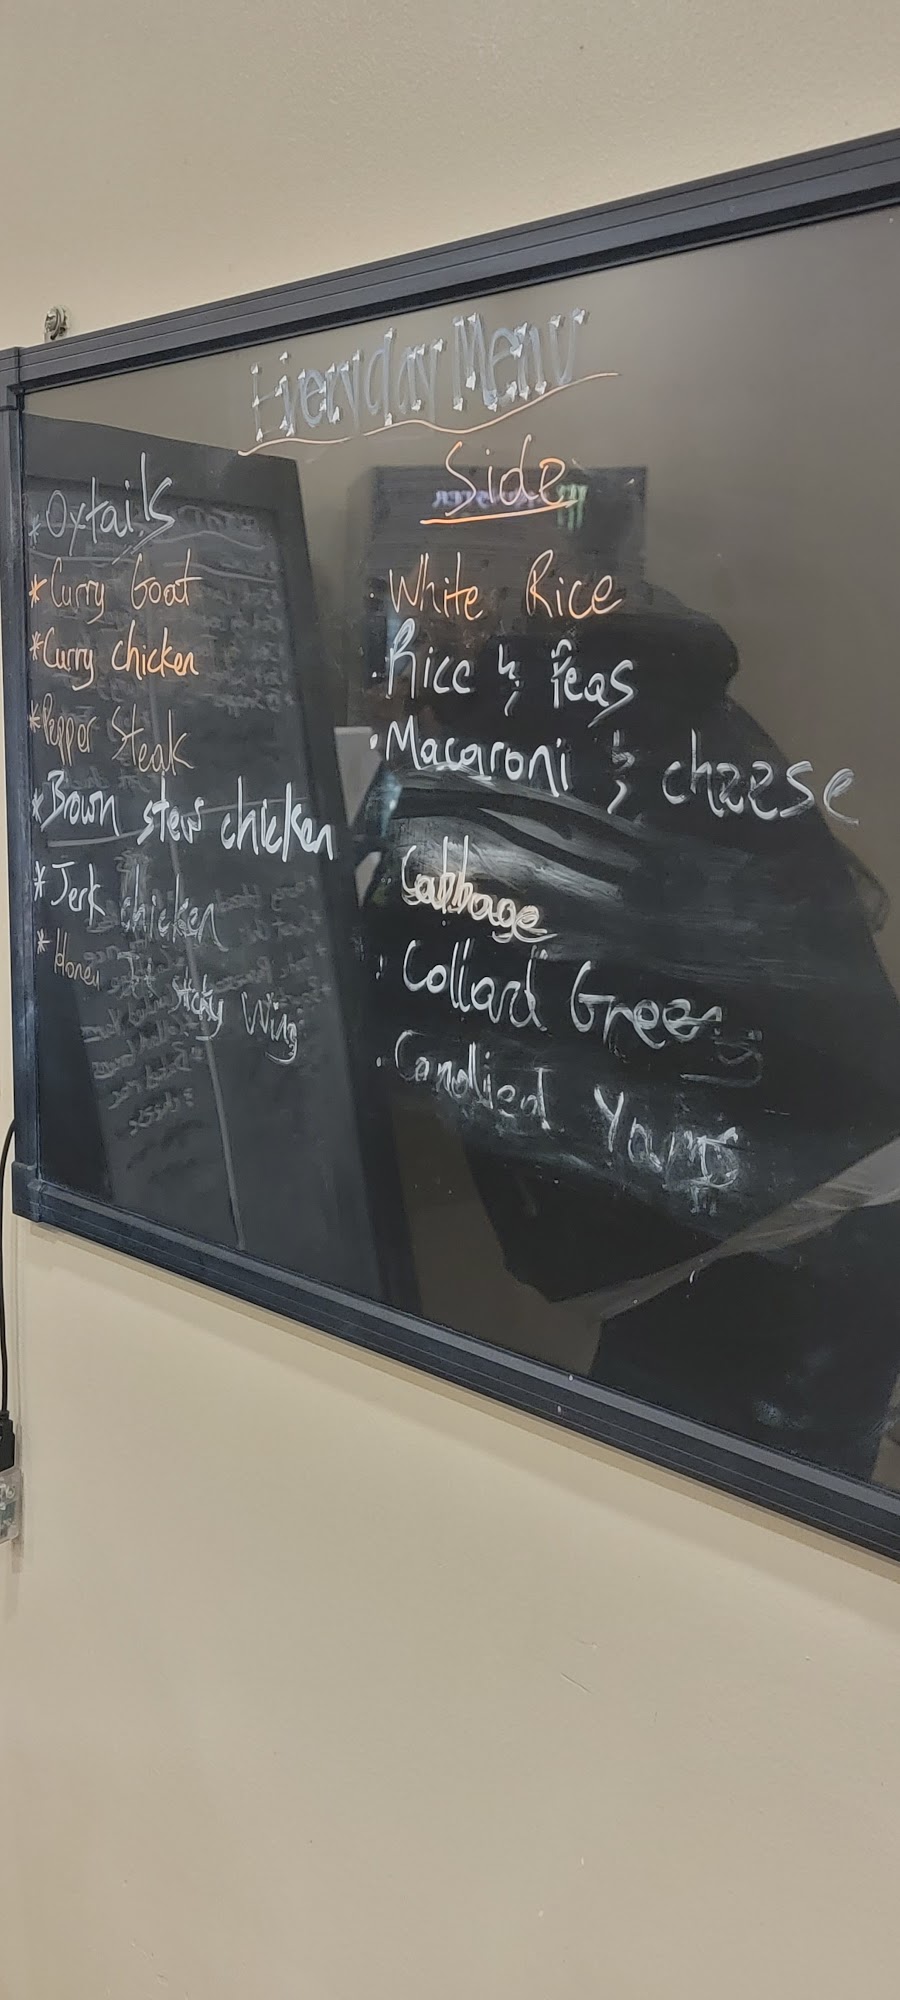 Everyday Menu
* Oxtails
* Curry Goat
* Curry chicken
* Pepper Steak
* Brown stew chicken
* Jerk chicken
* Honey Sticky Wing
Side
· White Rice
· Rice & Peas
· Macaroni & cheese
· Cabbage
· Collard Greens
· Candied Yams